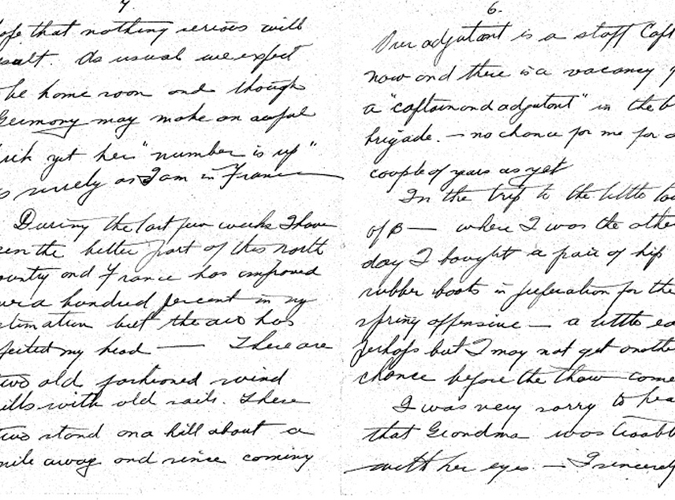 4
ope that nothing serious will
esult. As usual we expect
be home soon and though
Germany may make an awful
ick yet her "number is up"
s surely as I am in France
During the last few weeks I have
een the better part of this north
ountry and France has improved
over a hundred percent in my
stimation but the air has
ffected my head — There are
two old fashioned wind
ills with old sails. These
two stand on a hill about a
mile away and since coming
6.
Our adjutant is a staff Capt
now and there is a vacancy
a "captain and adjutant" in the b
brigade. — no chance for me for a
couple of years as yet
In the trip to the little to
of B — where I was the othe
day I bought a pair of hip
rubber boots in preparation for the
spring offensive — a little ea
perhaps but I may not get anothe
chance before the thaw come
I was very sorry to hea
that Grandma was troubl
with her eyes — I sincerely